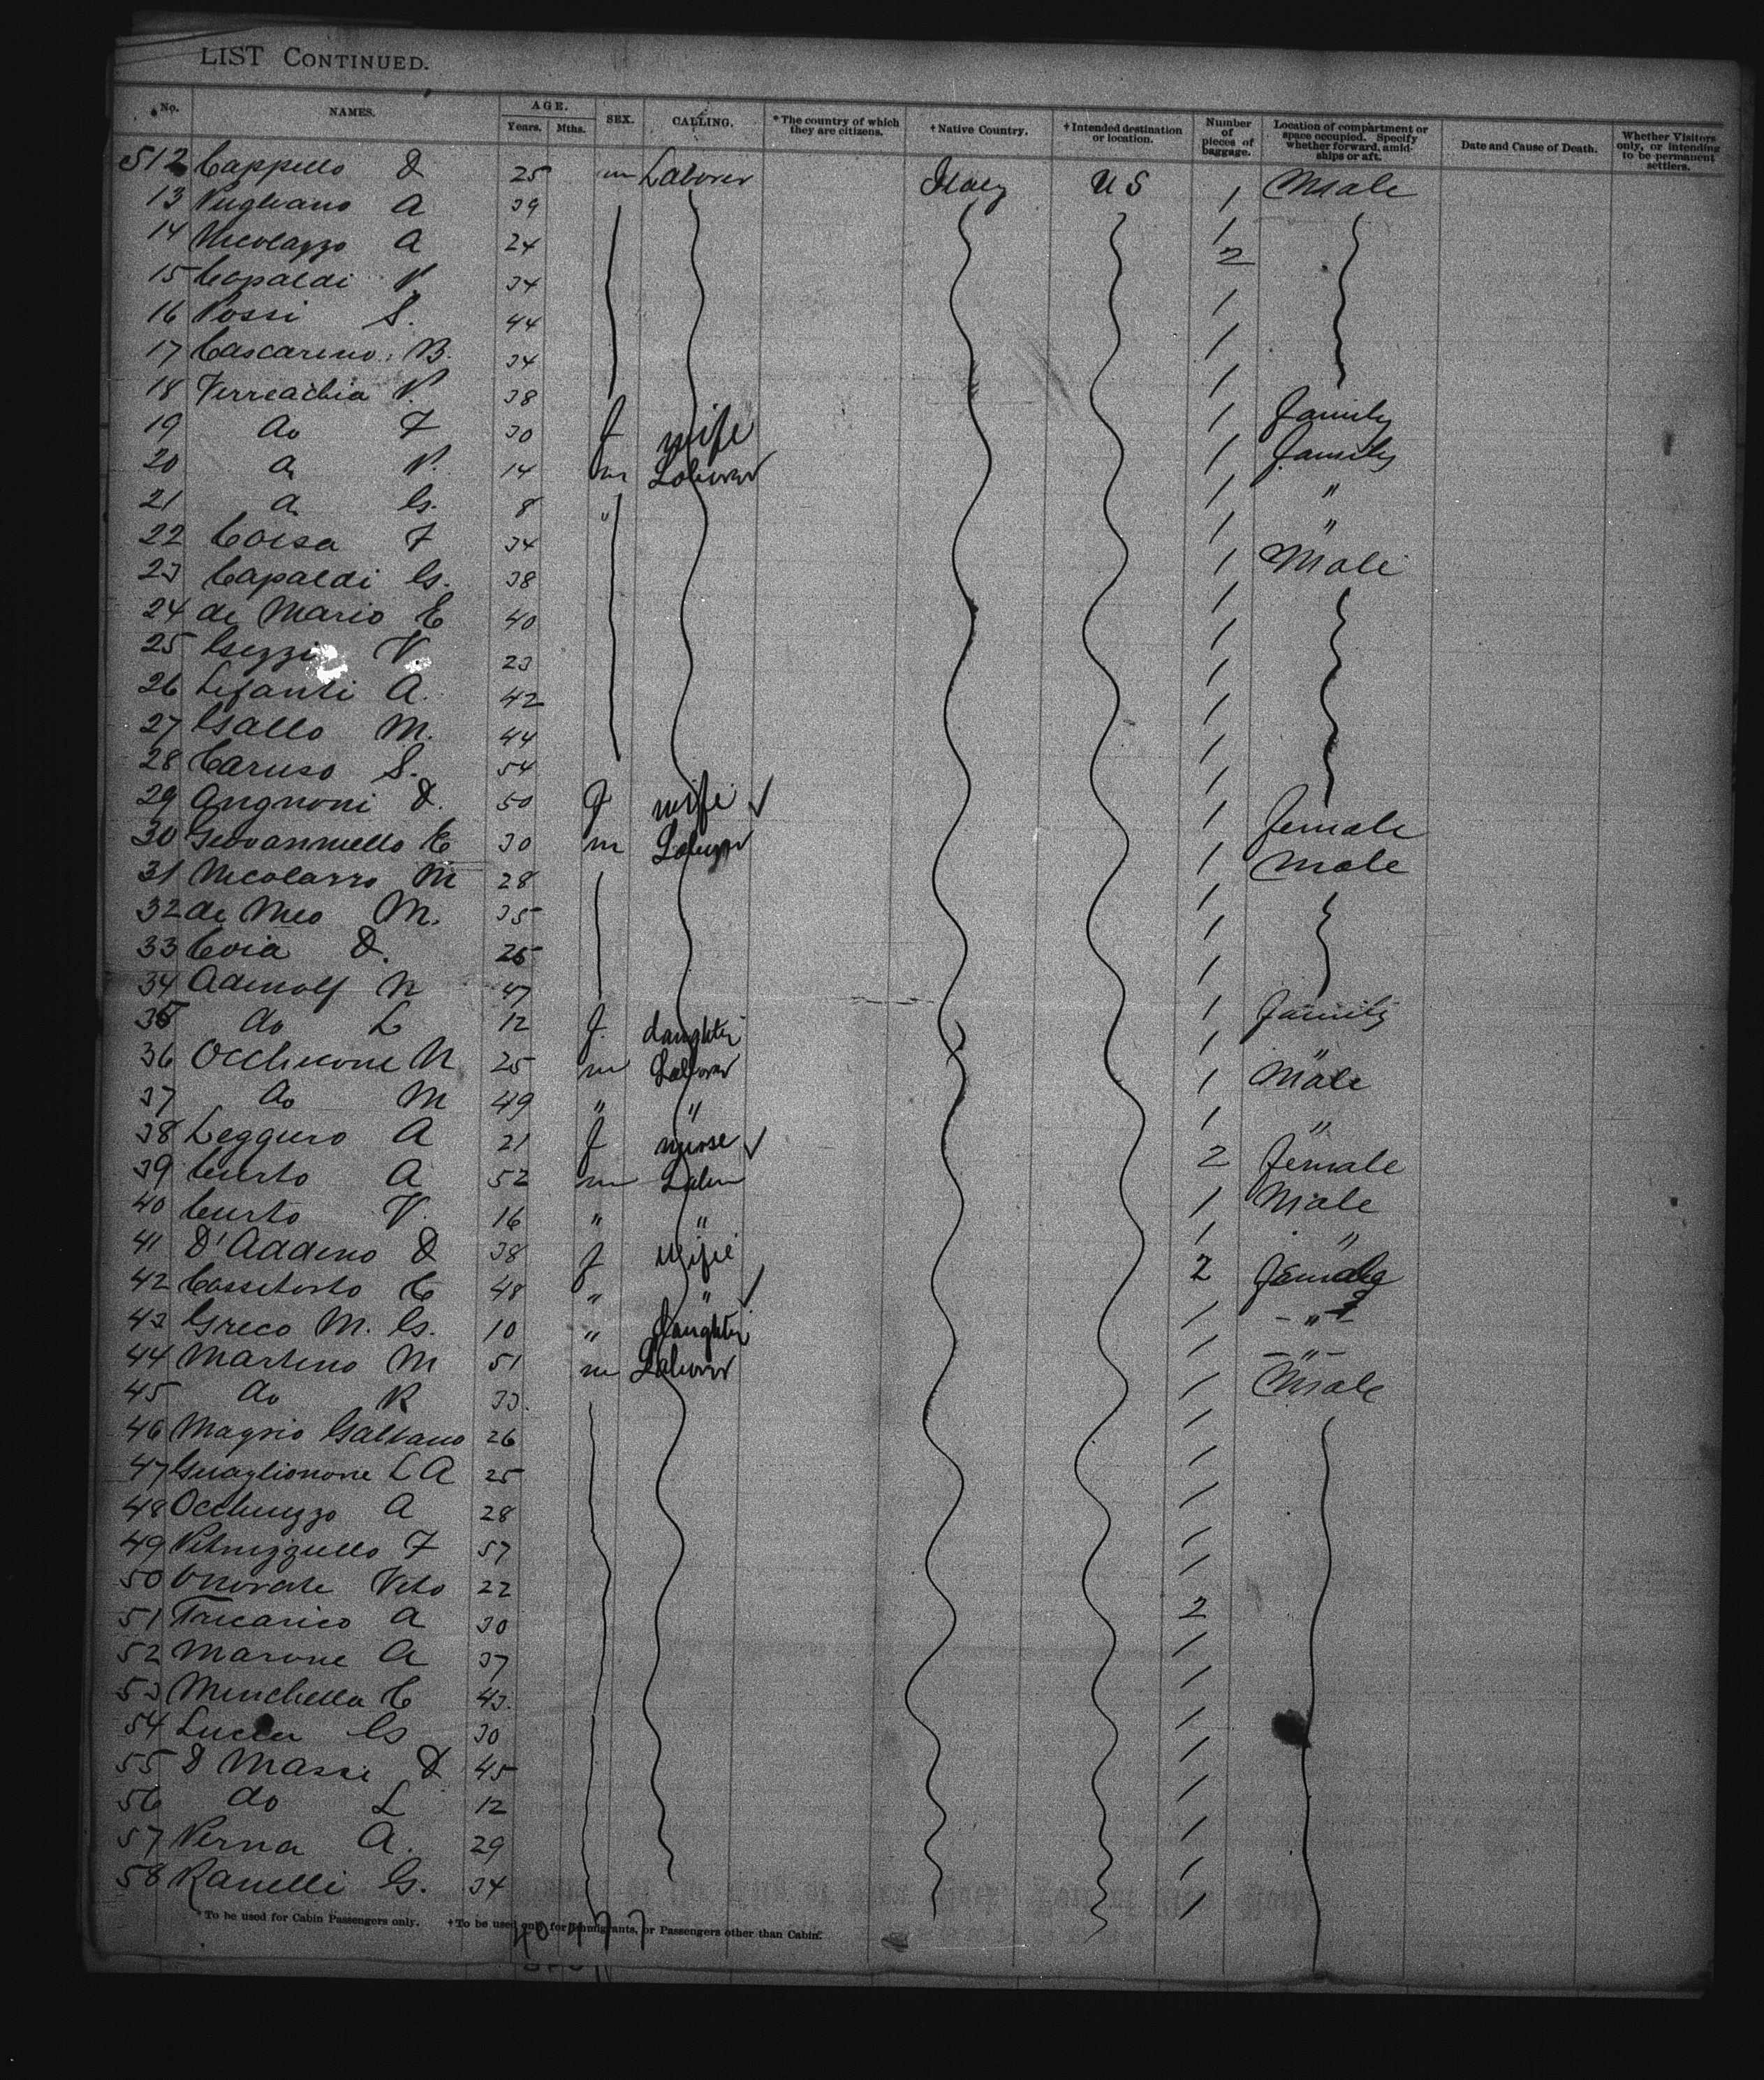 LIST CONTINUED.
No. NAMES. AGE. Years. Mths. SEX. CALLING. *The country of which they are citizens. †Native Country. †Intended destination or location. Number of pieces of baggage. Location of compartment or space occupied. Specify whether forward, amidships or aft. Date and Cause of Death. Whether Visitors only, or intending to be permanent settlers.
512 Cappello D 25 m Laborer Italy US 1 Male
13 Pugliano A 39 1
14 Nicolazzo A 24 2
15 Capaldi P 34 1
16 Rossi S. 44 1
17 Cascarino B. 34 1
18 Verrecchia P. 38 1 family
19 do F 30 f wife 1 family
20 do P. 14 m Laborer 1 "
21 do G. 8 " 1 "
22 Corsa F 34 1 Male
23 Capaldi G. 38 1
24 de Mario E 40 1
25 V. 23 1
26 Lefanti A. 42 1
27 Gallo M. 44 1
28 Caruso S. 54 1
29 Angnoni D. 50 f wife 1 female
30 Giovanniello C 30 m Laborer 1 male
31 Nicolazzo M 28 1
32 de Meo M. 35 1
33 Coia D. 25 1
34 Adinolf N 47 1 family
35 do L 12 f. daughter 1 "
36 Occhicone N 25 m Laborer 1 Male
37 do M 49 " " 1 "
38 Leggiero A 21 f 2 female
39 Curto A 52 m Labor 1 Male
40 Curto V. 16 " " 1 "
41 D'Addeno D 38 f wife 2
42 C 48 " " 1 "
43 Greco M. G. 10 " Daughter 1 "
44 Martino M 51 m Laborer 1 Male
45 do R 33. 1
46 Magno Galtano 26 1
47 Guaglionone L A 25 1
48 Occhiuzzo A 28 1
49 Petruzziello F 57 1
50 Onorate Vito 22 2
51 Tricarico A 30 1
52 Marone A 37 1
53 Minchella C 43. 1
54 Lucca G 30 1
55 D Massi D 45 1
56 do L 12 1
57 Perna A. 29 1
58 Ranelli G. 34 1
*To be used for Cabin Passengers only. †To be used only for Immigrants, or Passengers other than Cabin.